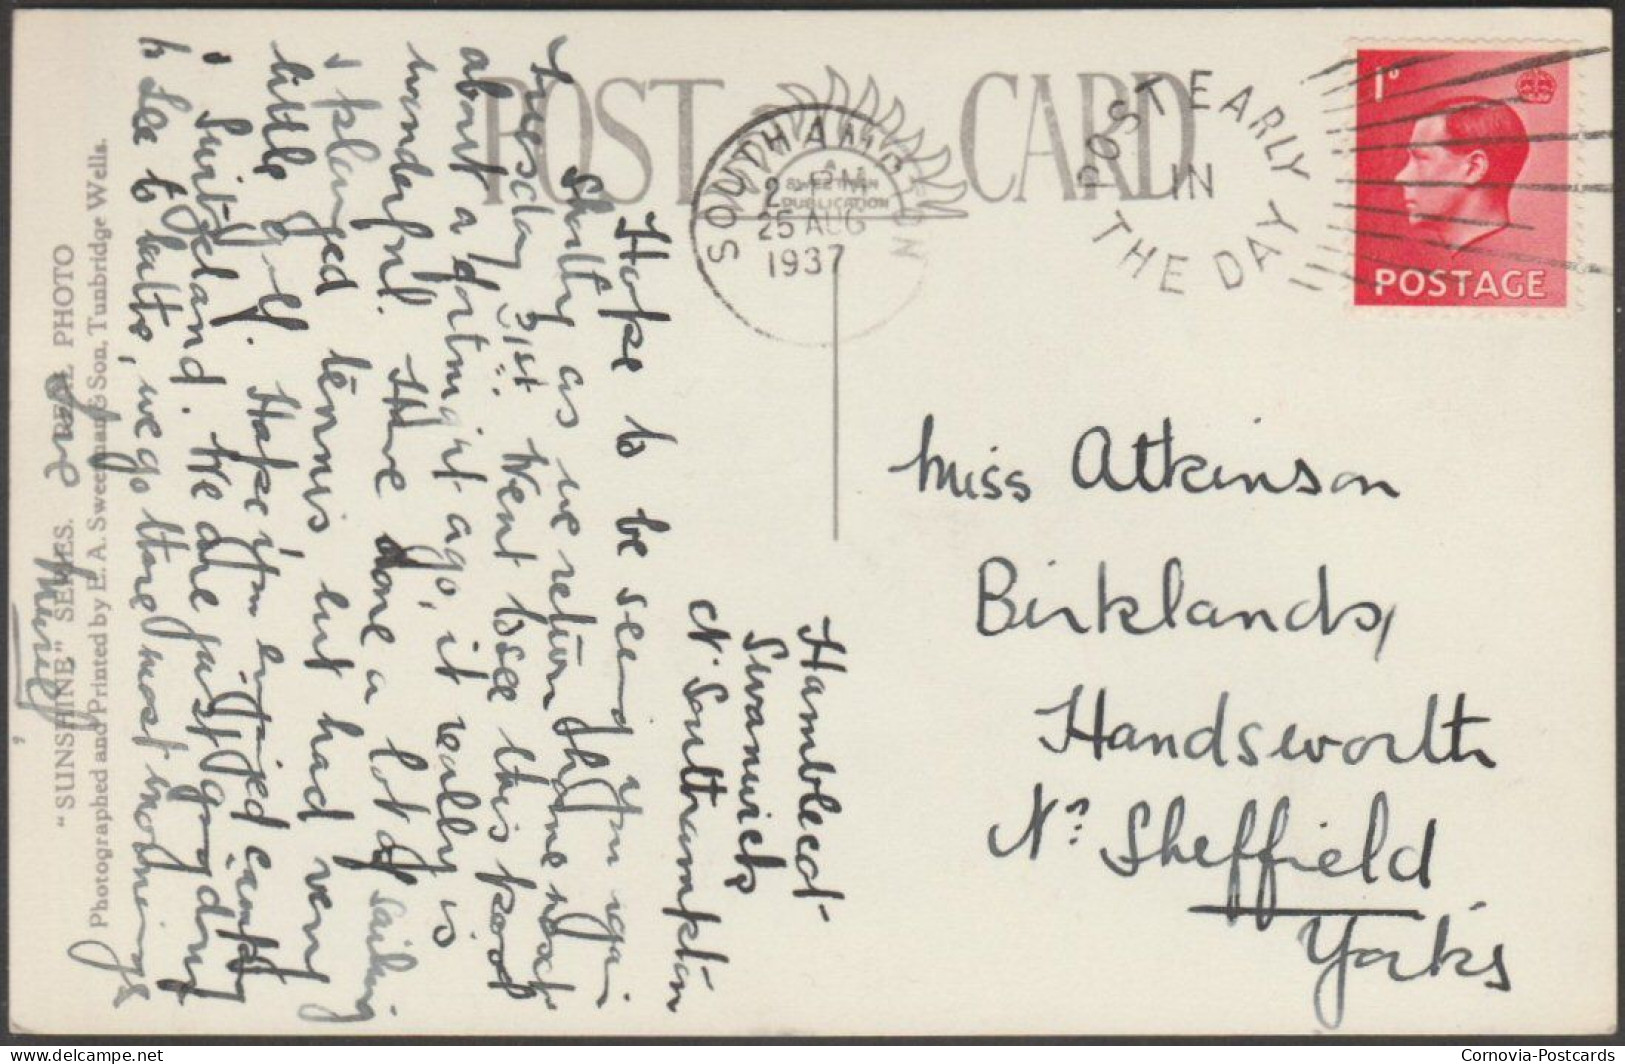 POST CARD
A
SWEETMAN
PUBLICATION
SOUTHAMPTON
2 PM
25 AUG
1937
POST EARLY
IN
THE DAY
1D
POSTAGE
"SUNSHINE" SERIES. REAL PHOTO
Photographed and Printed by E. A. Sweetman & Son, Tunbridge Wells.
Hambledot
Swanwick
Nr. Southampton
Hope to be seeing you again
shortly as we return home next
Tuesday 31st. Went to see this place
about a fortnight ago, it really is
wonderful. Have done a lot of sailing
& played tennis but had very
little golf. Hope you enjoyed camp
& Switzerland. We are just going
to see to bathe, we go there most mornings
Miss Atkinson
Birklands,
Handsworth
Nr. Sheffield
Yorks
Cornovia-Postcards